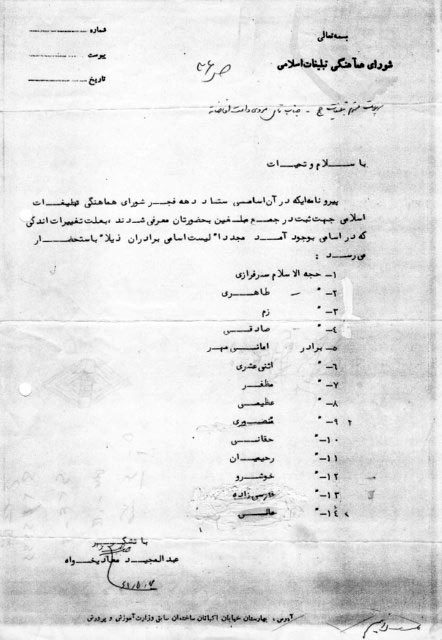 بسمه تعالی
شماره
شورای هماهنگی تبلیغات اسلامی
پیوست
تاریخ
با سلام و تحیات
پیرو نامه‌ایکه در آن اسامی ستاد دهه فجر شورای هماهنگی تبلیغات
اسلامی جهت ثبت در جمع مبلغین بحضورتان معرفی شدند ، بعلت تغییرات اندکی
که در اسامی بوجود آمد مجددا" لیست اسامی برادران ذیلا" باستحضار
می رسد :
۱- حجه الاسلام سرفرازی
۲- " طاهری
۳- " زم
۴- " صادقی
۵- برادر امانی مهر
۶- " اثنی عشری
۷- " مظفر
۸- " عظیمی
۹- " منصوری
۱۰- " حقانی
۱۱- " رحیمیان
۱۲- " خوشرو
۱۳- " فارسی زاده
۱۴- "
با تشکر
عبدالمجید معادیخواه
آدرس: بهارستان خیابان اکباتان ساختمان سابق وزارت آموزش و پرورش